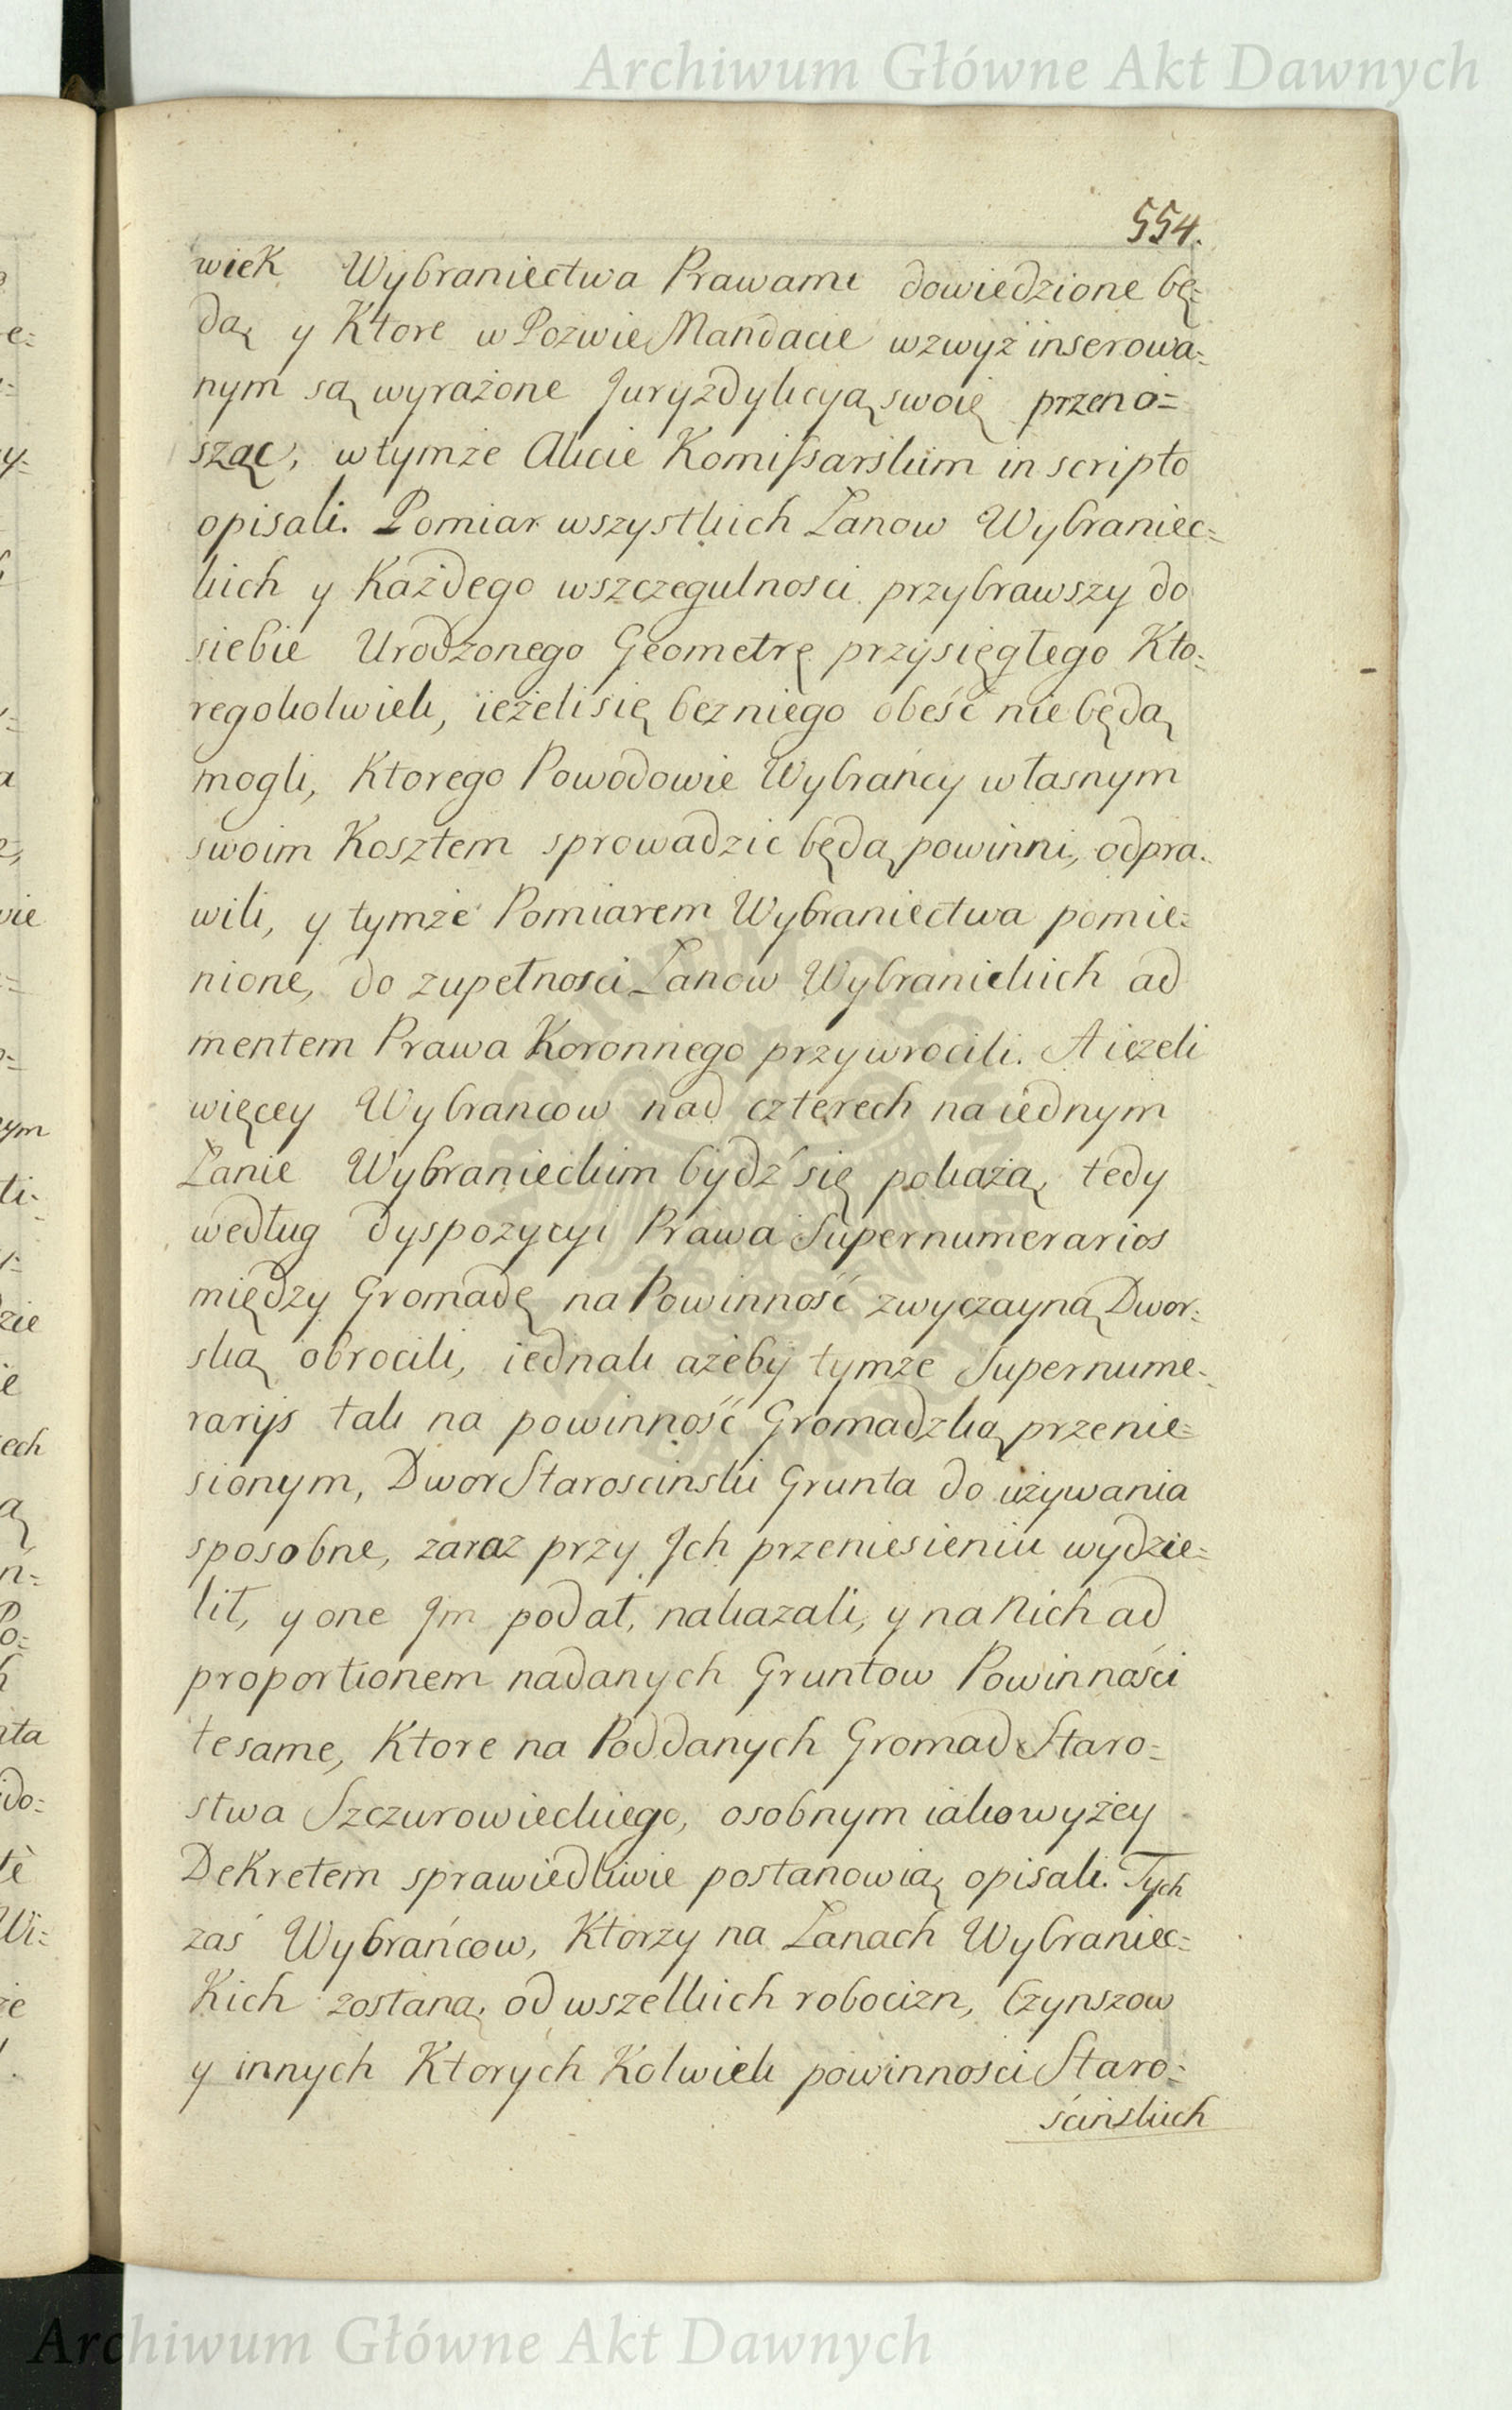 Archiwum Główne Akt Dawnych
554.
wiek Wybraniectwa Prawami dowiedzione bę=
dą y Ktore w Pozwie Mandacie wzwyż inserowa=
nym są wyrażone Juryzdykcyą swoię przeno=
sząc, w tymże Akcie Komissarskim in scripto
opisali. Pomiar wszystkich Łanow Wybraniec=
kich y Każdego wszczegulnosci przybrawszy do
siebie Urodzonego Geometrę przysięgłego Kto=
regokolwiek, ieżeli się bez niego obeść nie będą
mogli, Ktorego Powodowie Wybrańcy własnym
swoim Kosztem sprowadzic będą powinni, odpra=
wili, y tymże Pomiarem Wybraniectwa pomie=
nione, do zupełnosci Łanow Wybranickich ad
mentem Prawa Koronnego przywrocili. A ieżeli
więcey Wybrancow nad czterech na iednym
Łanie Wybranieckim bydź się pokażą, tedy
według dyspozycyi Prawa Supernumerarios
między Gromadę na Powinność zwyczayną Dwor=
ską obrocili, iednak ażeby tymże Supernume=
rarijs tak na powinność Gromadzką przenie=
sionym, Dwor Staroscinski Grunta do używania
sposobne, zaraz przy Jch przeniesieniu wydzie=
lił, y one Jm podał, nakazali, y na Nich ad
proportionem nadanych Gruntow Powinności
te same, Ktore na Poddanych Gromad Staro=
stwa Szczurowieckiego, osobnym iako wyżey
DeKretem sprawiedliwie postanowią opisali. Tych
zaś Wybrańcow, Ktorzy na Łanach Wybraniec=
Kich zostaną, od wszelkich robocizn, Czynszow
y innych Ktorych Kolwiek powinnosci Staro=
ścińskich
Archiwum Główne Akt Dawnych